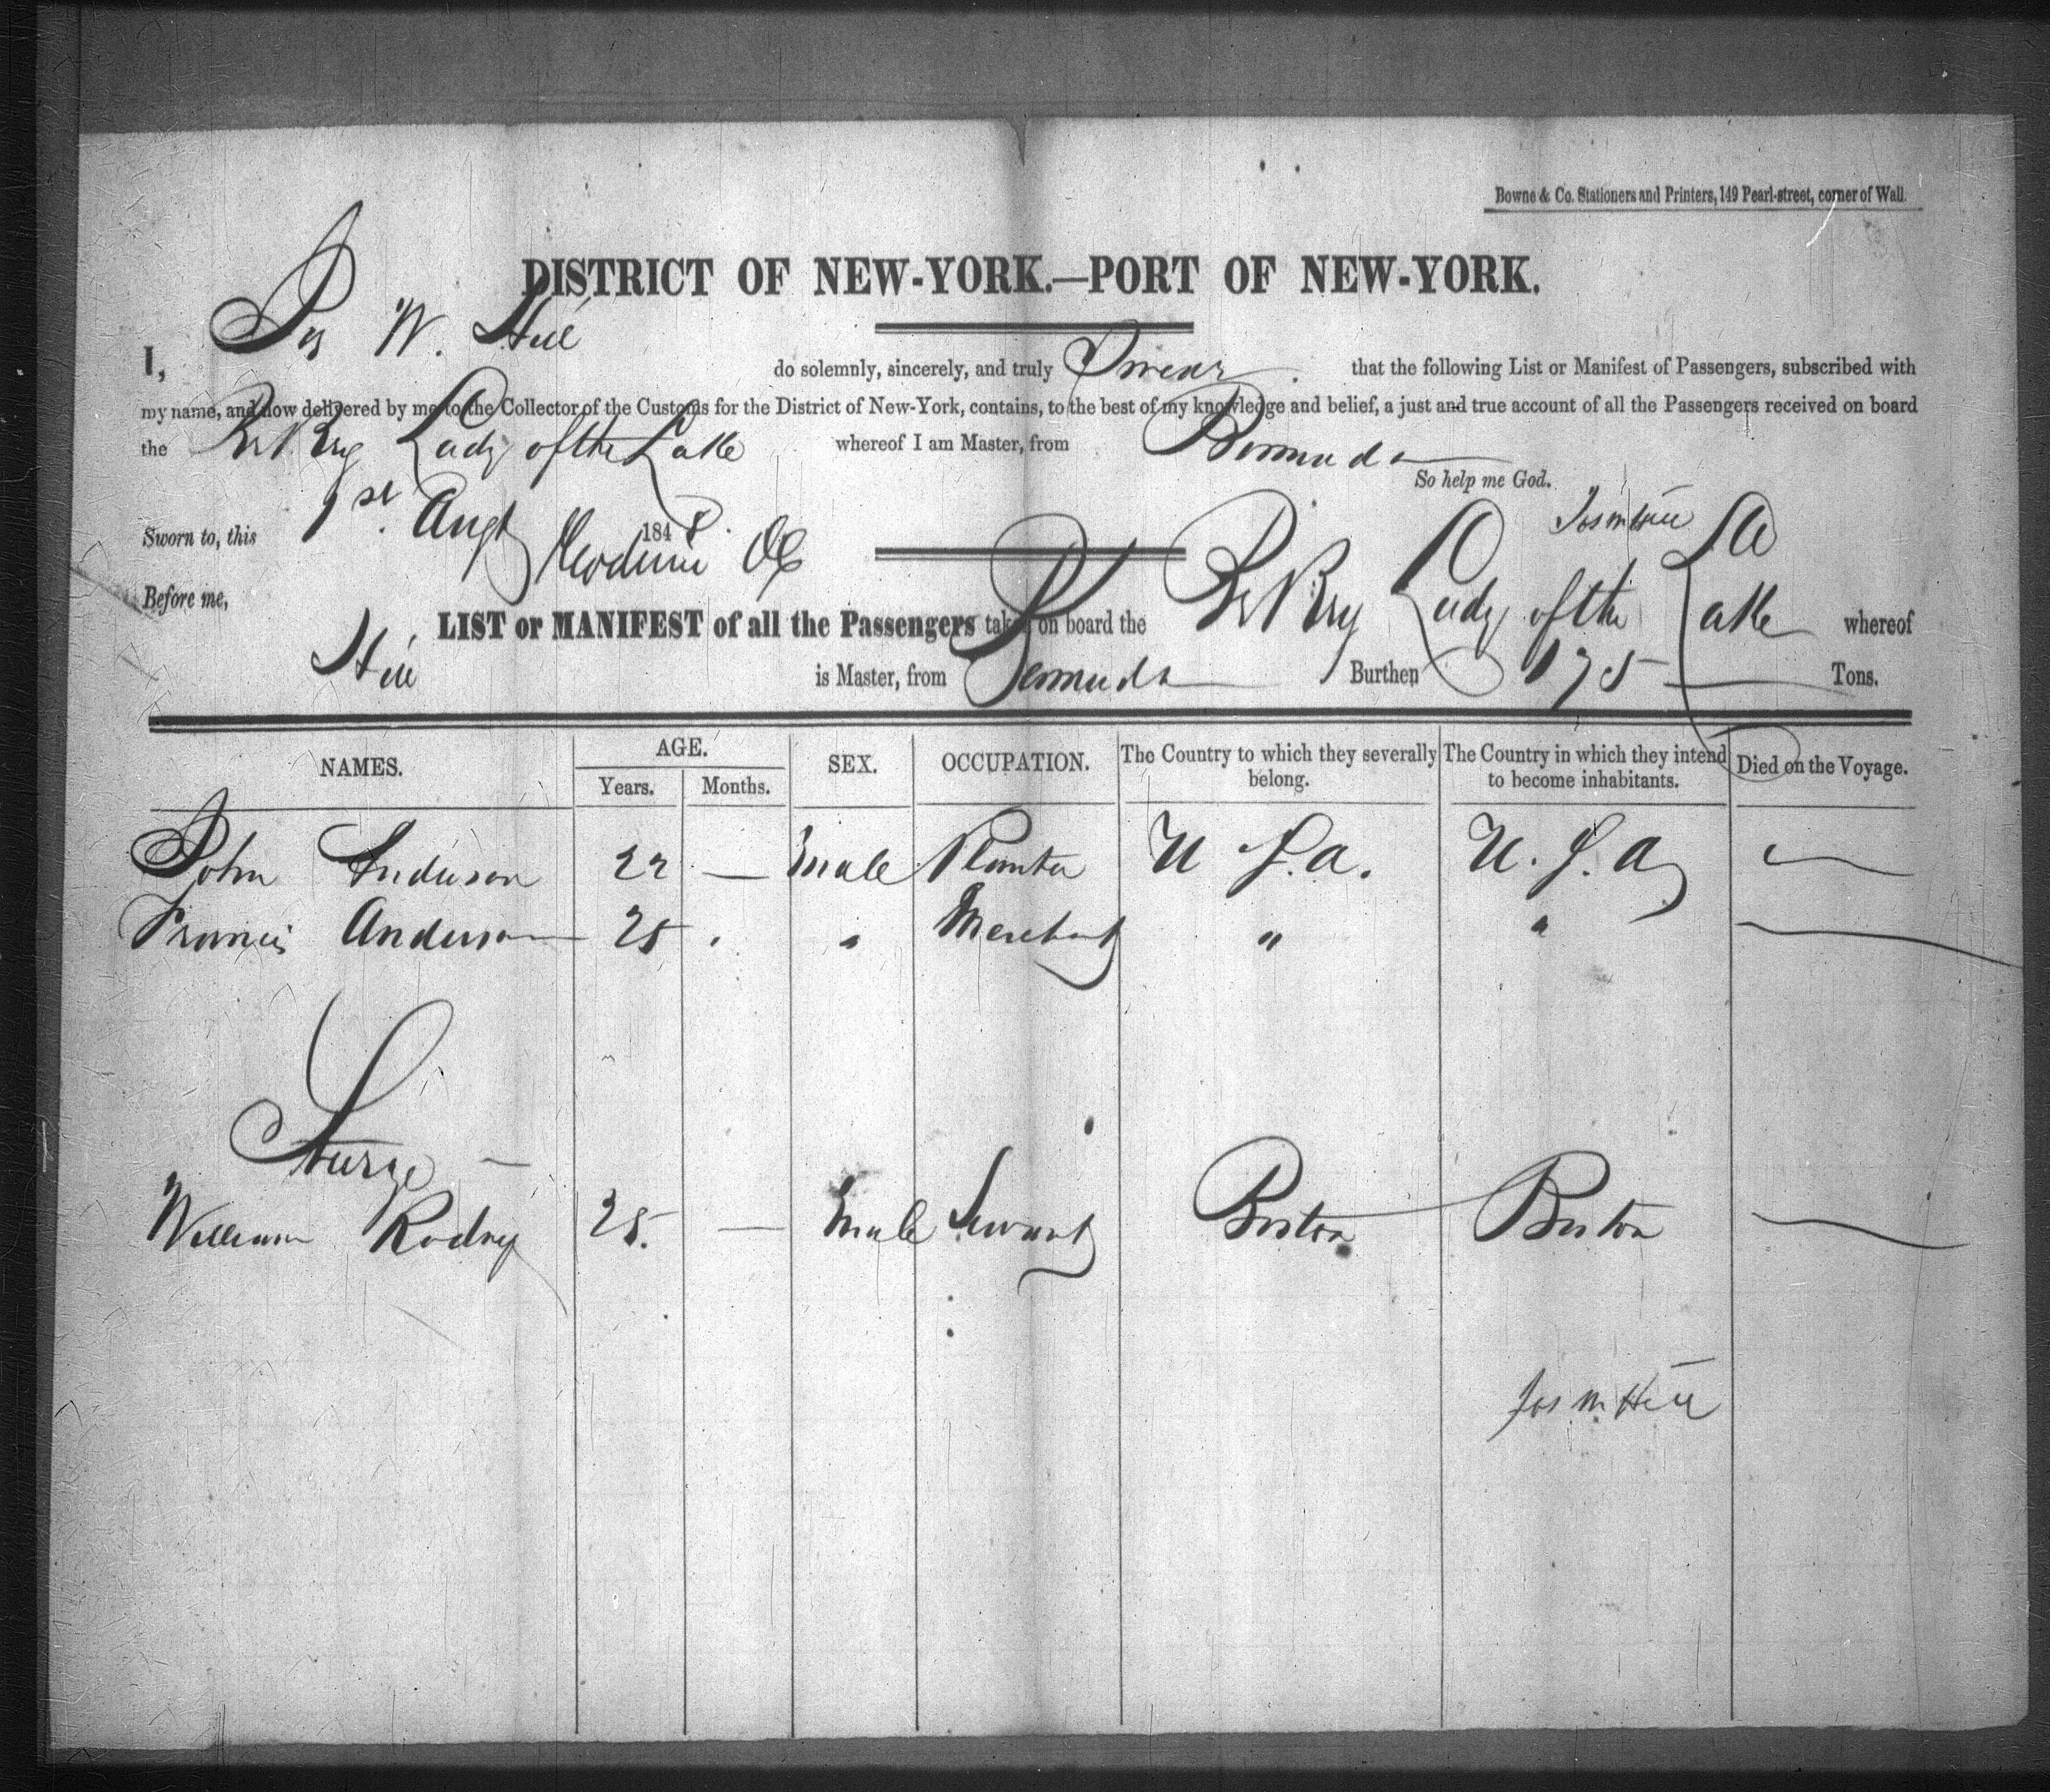 Bowne & Co. Stationers and Printers, 149 Pearl-street, corner of Wall.
DISTRICT OF NEW-YORK.—PORT OF NEW-YORK.
I, Jos W. Hill do solemnly, sincerely, and truly Swear that the following List or Manifest of Passengers, subscribed with
my name, and now delivered by me to the Collector of the Customs for the District of New-York, contains, to the best of my knowledge and belief, a just and true account of all the Passengers received on board
the Br Brig Lady of the Lake whereof I am Master, from Bermuda
So help me God.
Sworn to, this 1st. Augt 1848. Jos W Hill
Before me,
LIST or MANIFEST of all the Passengers taken on board the Br Brig Lady of the Lake whereof
Hill is Master, from Bermuda Burthen 175 Tons.
NAMES. AGE. Years. Months. SEX. OCCUPATION. The Country to which they severally belong. The Country in which they intend to become inhabitants. Died on the Voyage.
John Anderson 22 — Male Planter U S. A. U. S. A —
Francis Anderson 25 " " Merchant " " —
Steerage —
William Rodney 25. — Male Servant Boston Boston —
Jos W Hill